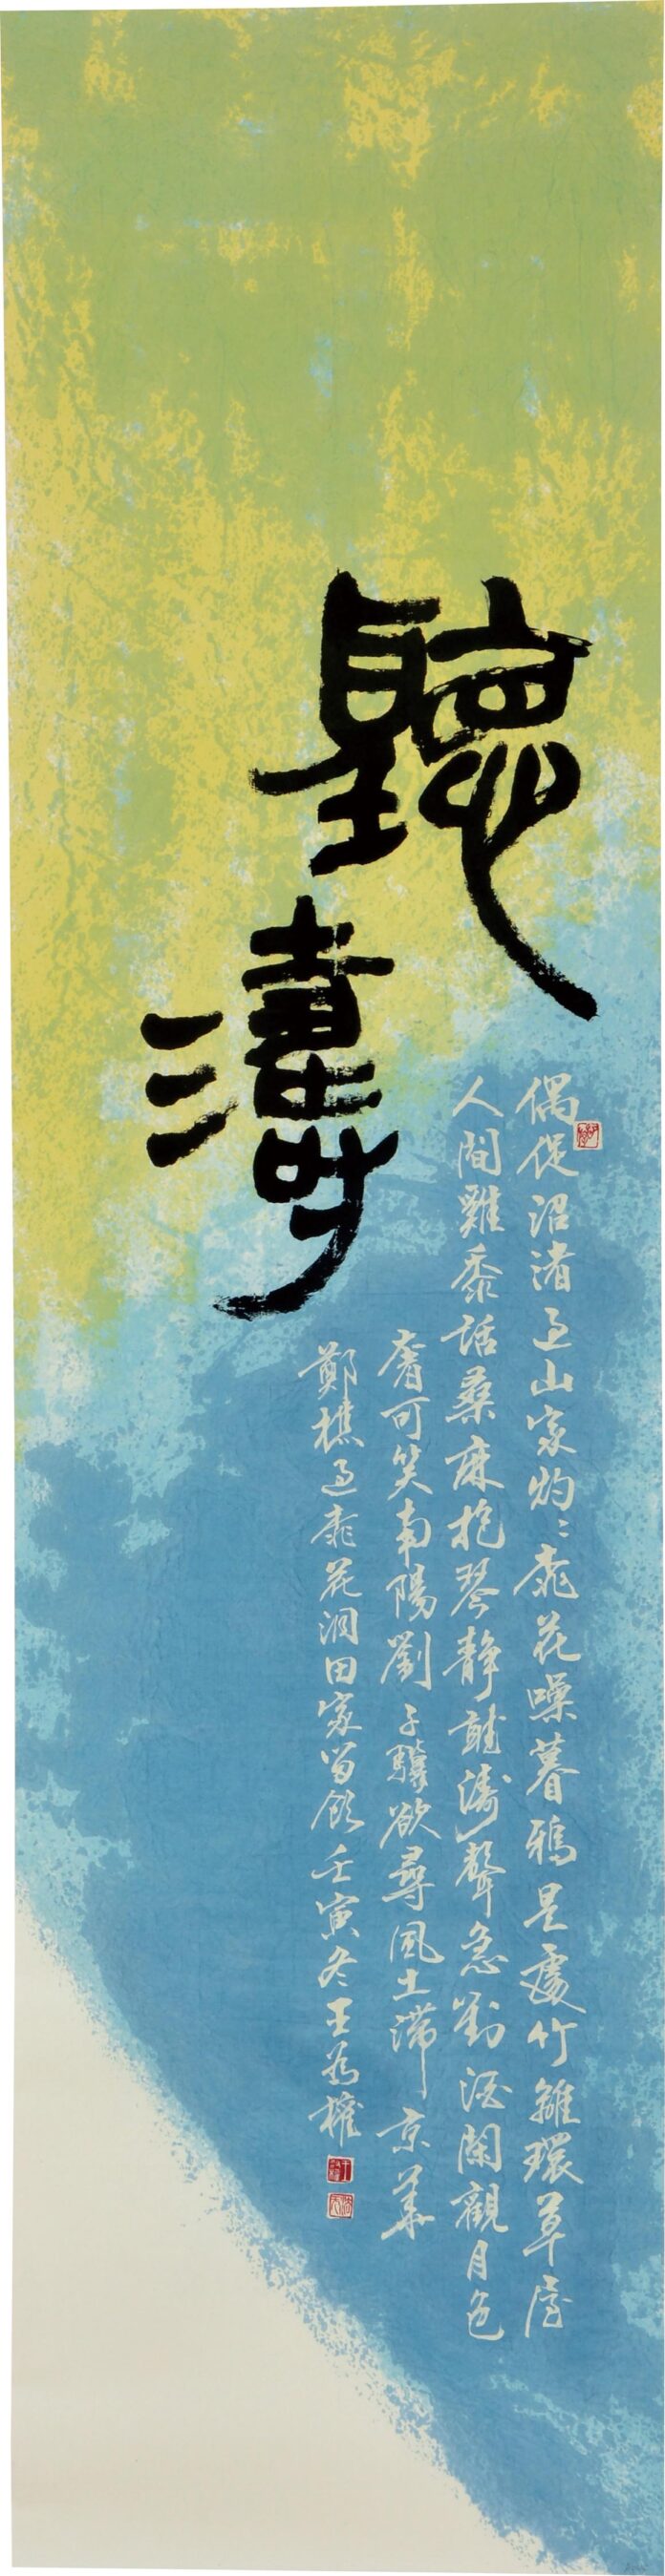 聽濤
偶從沼渚過山家灼〻桃花噪暮鴉是處竹籬環草屋
人間雞黍話桑麻抱琴靜聽濤聲急對酒閑觀月色
奢可笑南陽劉子驥欲尋風土滯京華
鄭樵過桃花洞田家留飲壬寅冬王為權